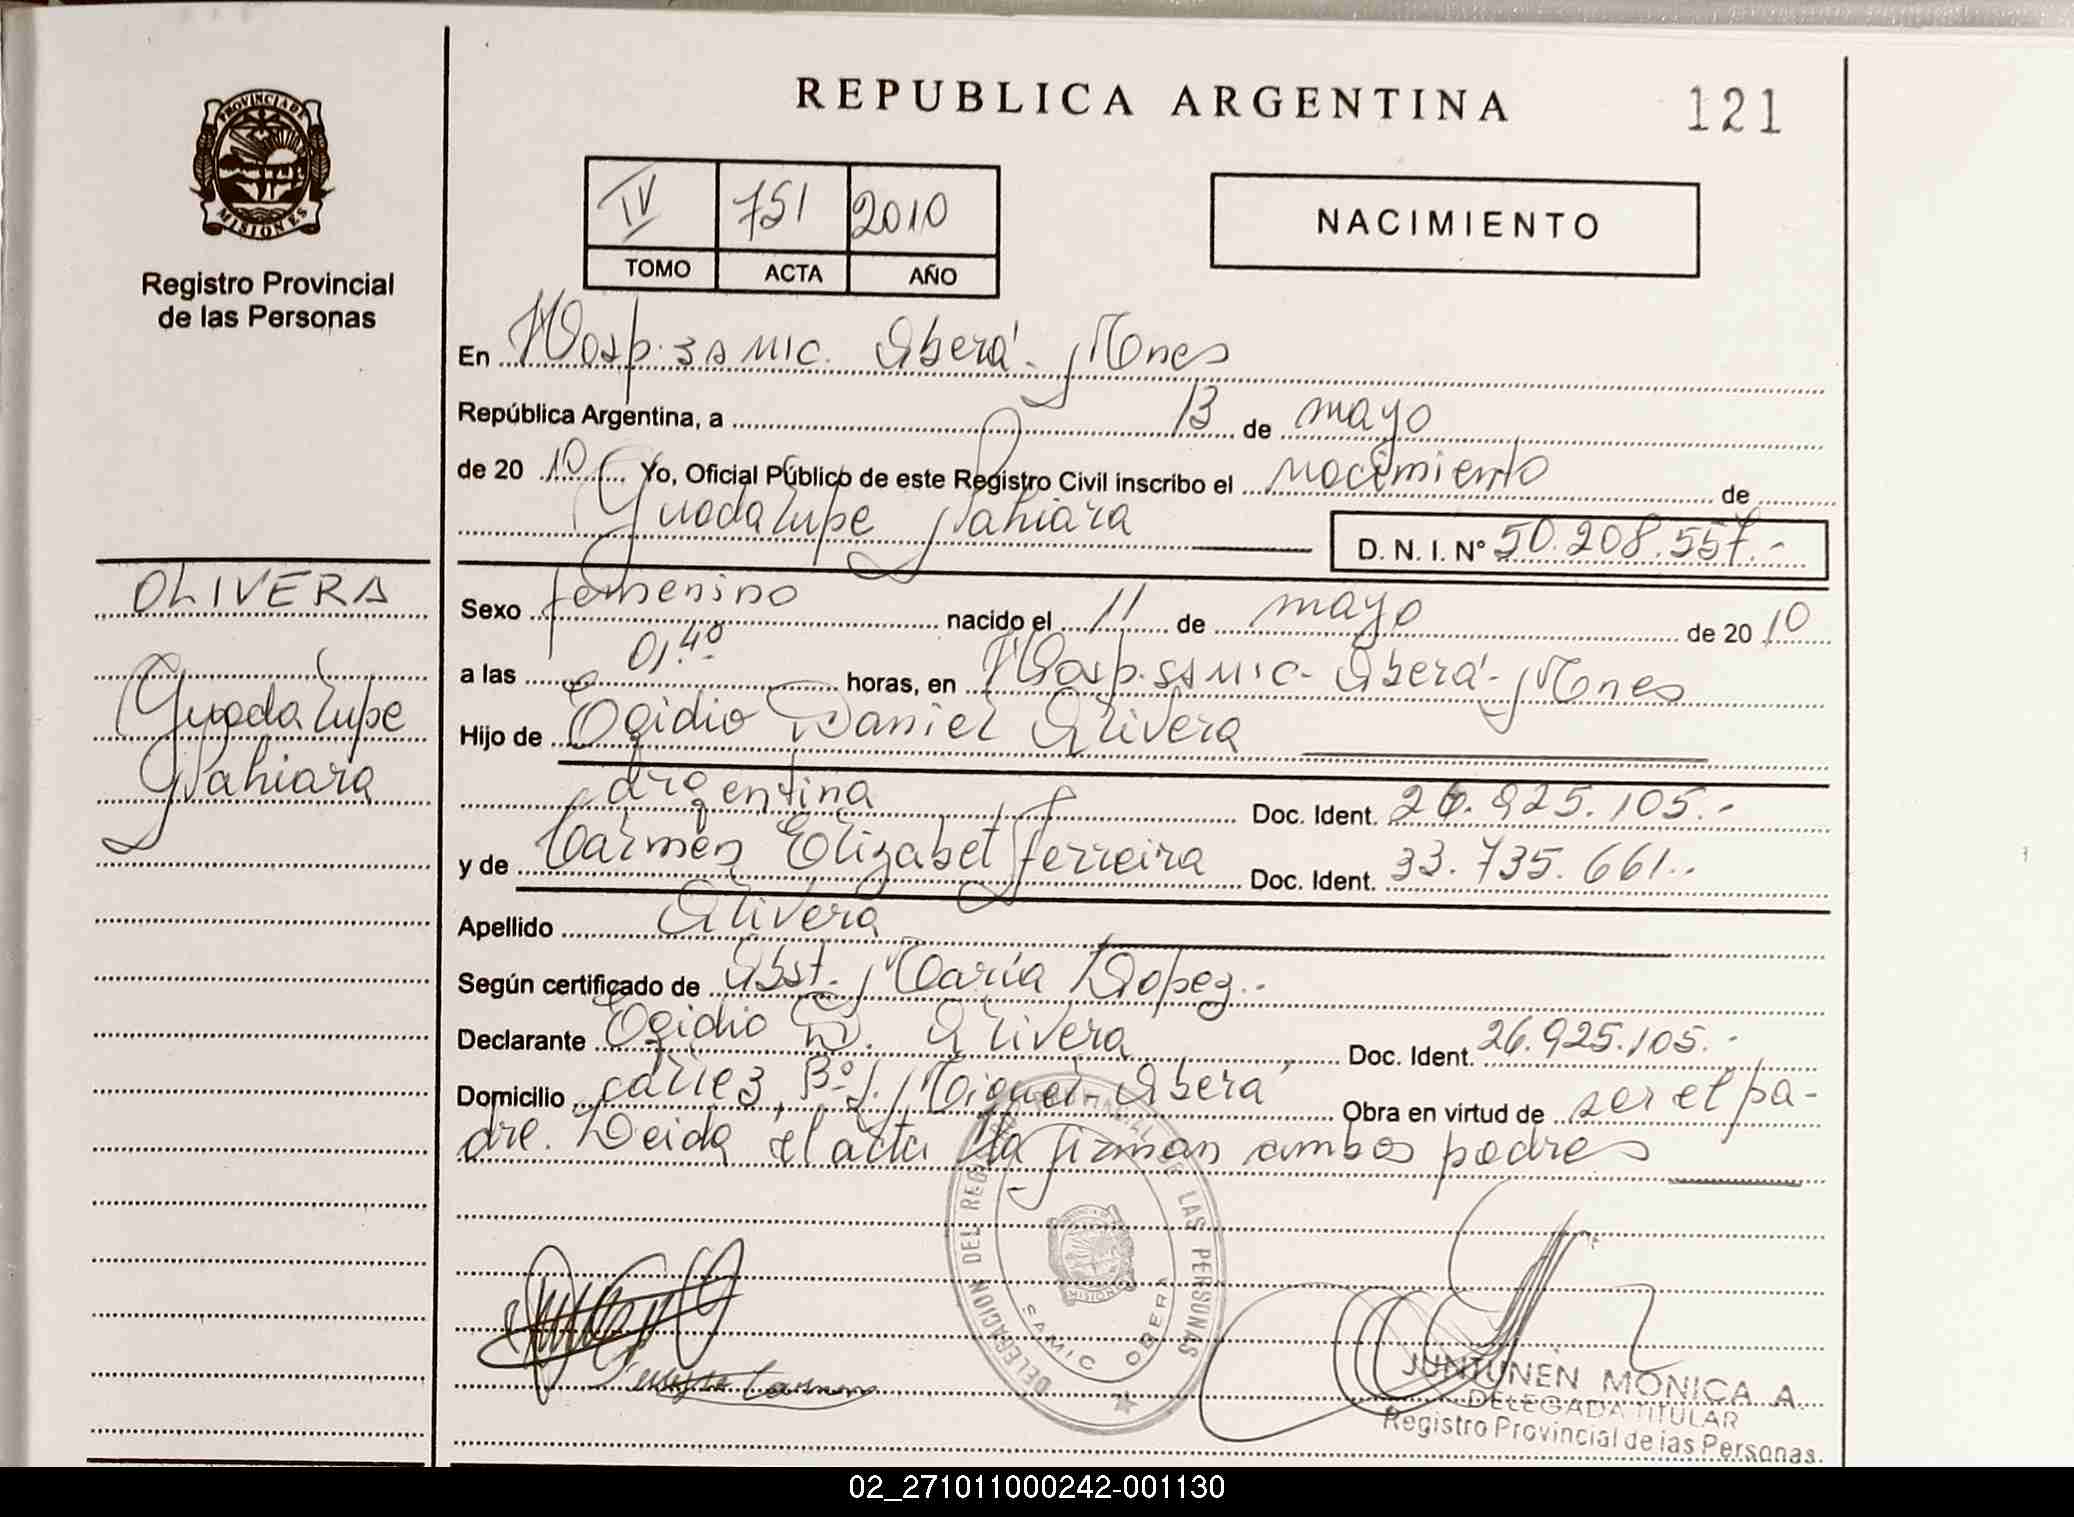 REPUBLICA ARGENTINA
121
PROVINCIA DE
MISIONES
Registro Provincial
de las Personas
IV 751 2010
TOMO ACTA AÑO
NACIMIENTO
En Hosp. SAMIC. Oberá - Mnes
República Argentina, a 13 de mayo
de 20 10 Yo, Oficial Público de este Registro Civil inscribo el nacimiento de
Guadalupe Nahiara D. N. I. Nº 50.208.557.-
OLIVERA
Guadalupe
Nahiara
Sexo femenino nacido el 11 de mayo de 20 10
a las 01,40 horas, en Hosp. SAMIC - Oberá - Mnes
Hijo de Egidio Daniel Olivera
argentina Doc. Ident. 26.925.105.-
y de Carmen Elizabet Ferreira Doc. Ident. 33.735.661.-
Apellido Olivera
Según certificado de Obst. María Lopez.-
Declarante Egidio D. Olivera Doc. Ident. 26.925.105.-
Domicilio calle 3, Bº S. Miguel - Oberá Obra en virtud de ser el pa-
dre. Leida el acta la firman ambos padres
DELEGACION DEL REGISTRO PROVINCIAL DE LAS PERSONAS
MISIONES
SAMIC OBERA
Ferreira Carmen
JUNTUNEN MONICA A.
DELEGADA TITULAR
Registro Provincial de las Personas.
02_271011000242-001130